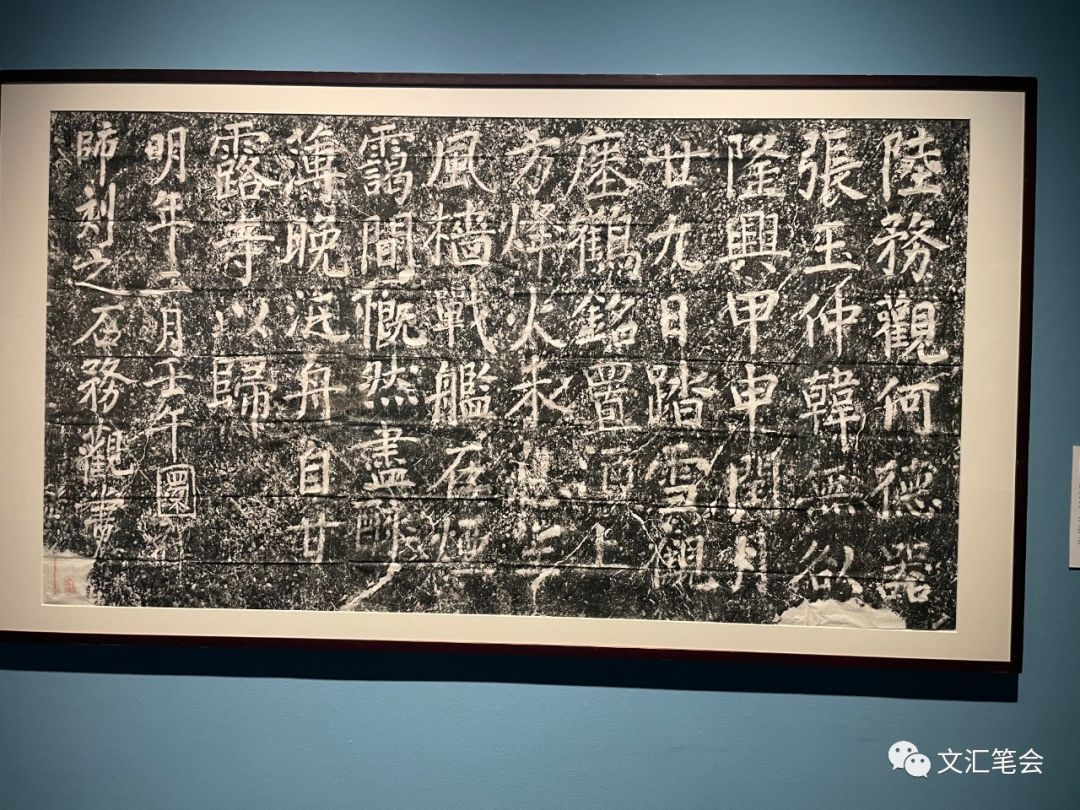 陸務觀何德器
張玉仲韓無咎
隆興甲申閏月
廿九日踏雪觀
瘞鶴銘置酒上
方烽火未息望
風檣戰艦在煙
靄間慨然盡醉
薄晚泛舟自甘
露寺以歸
明年二月壬午圜
師刻之石務觀書
文汇笔会